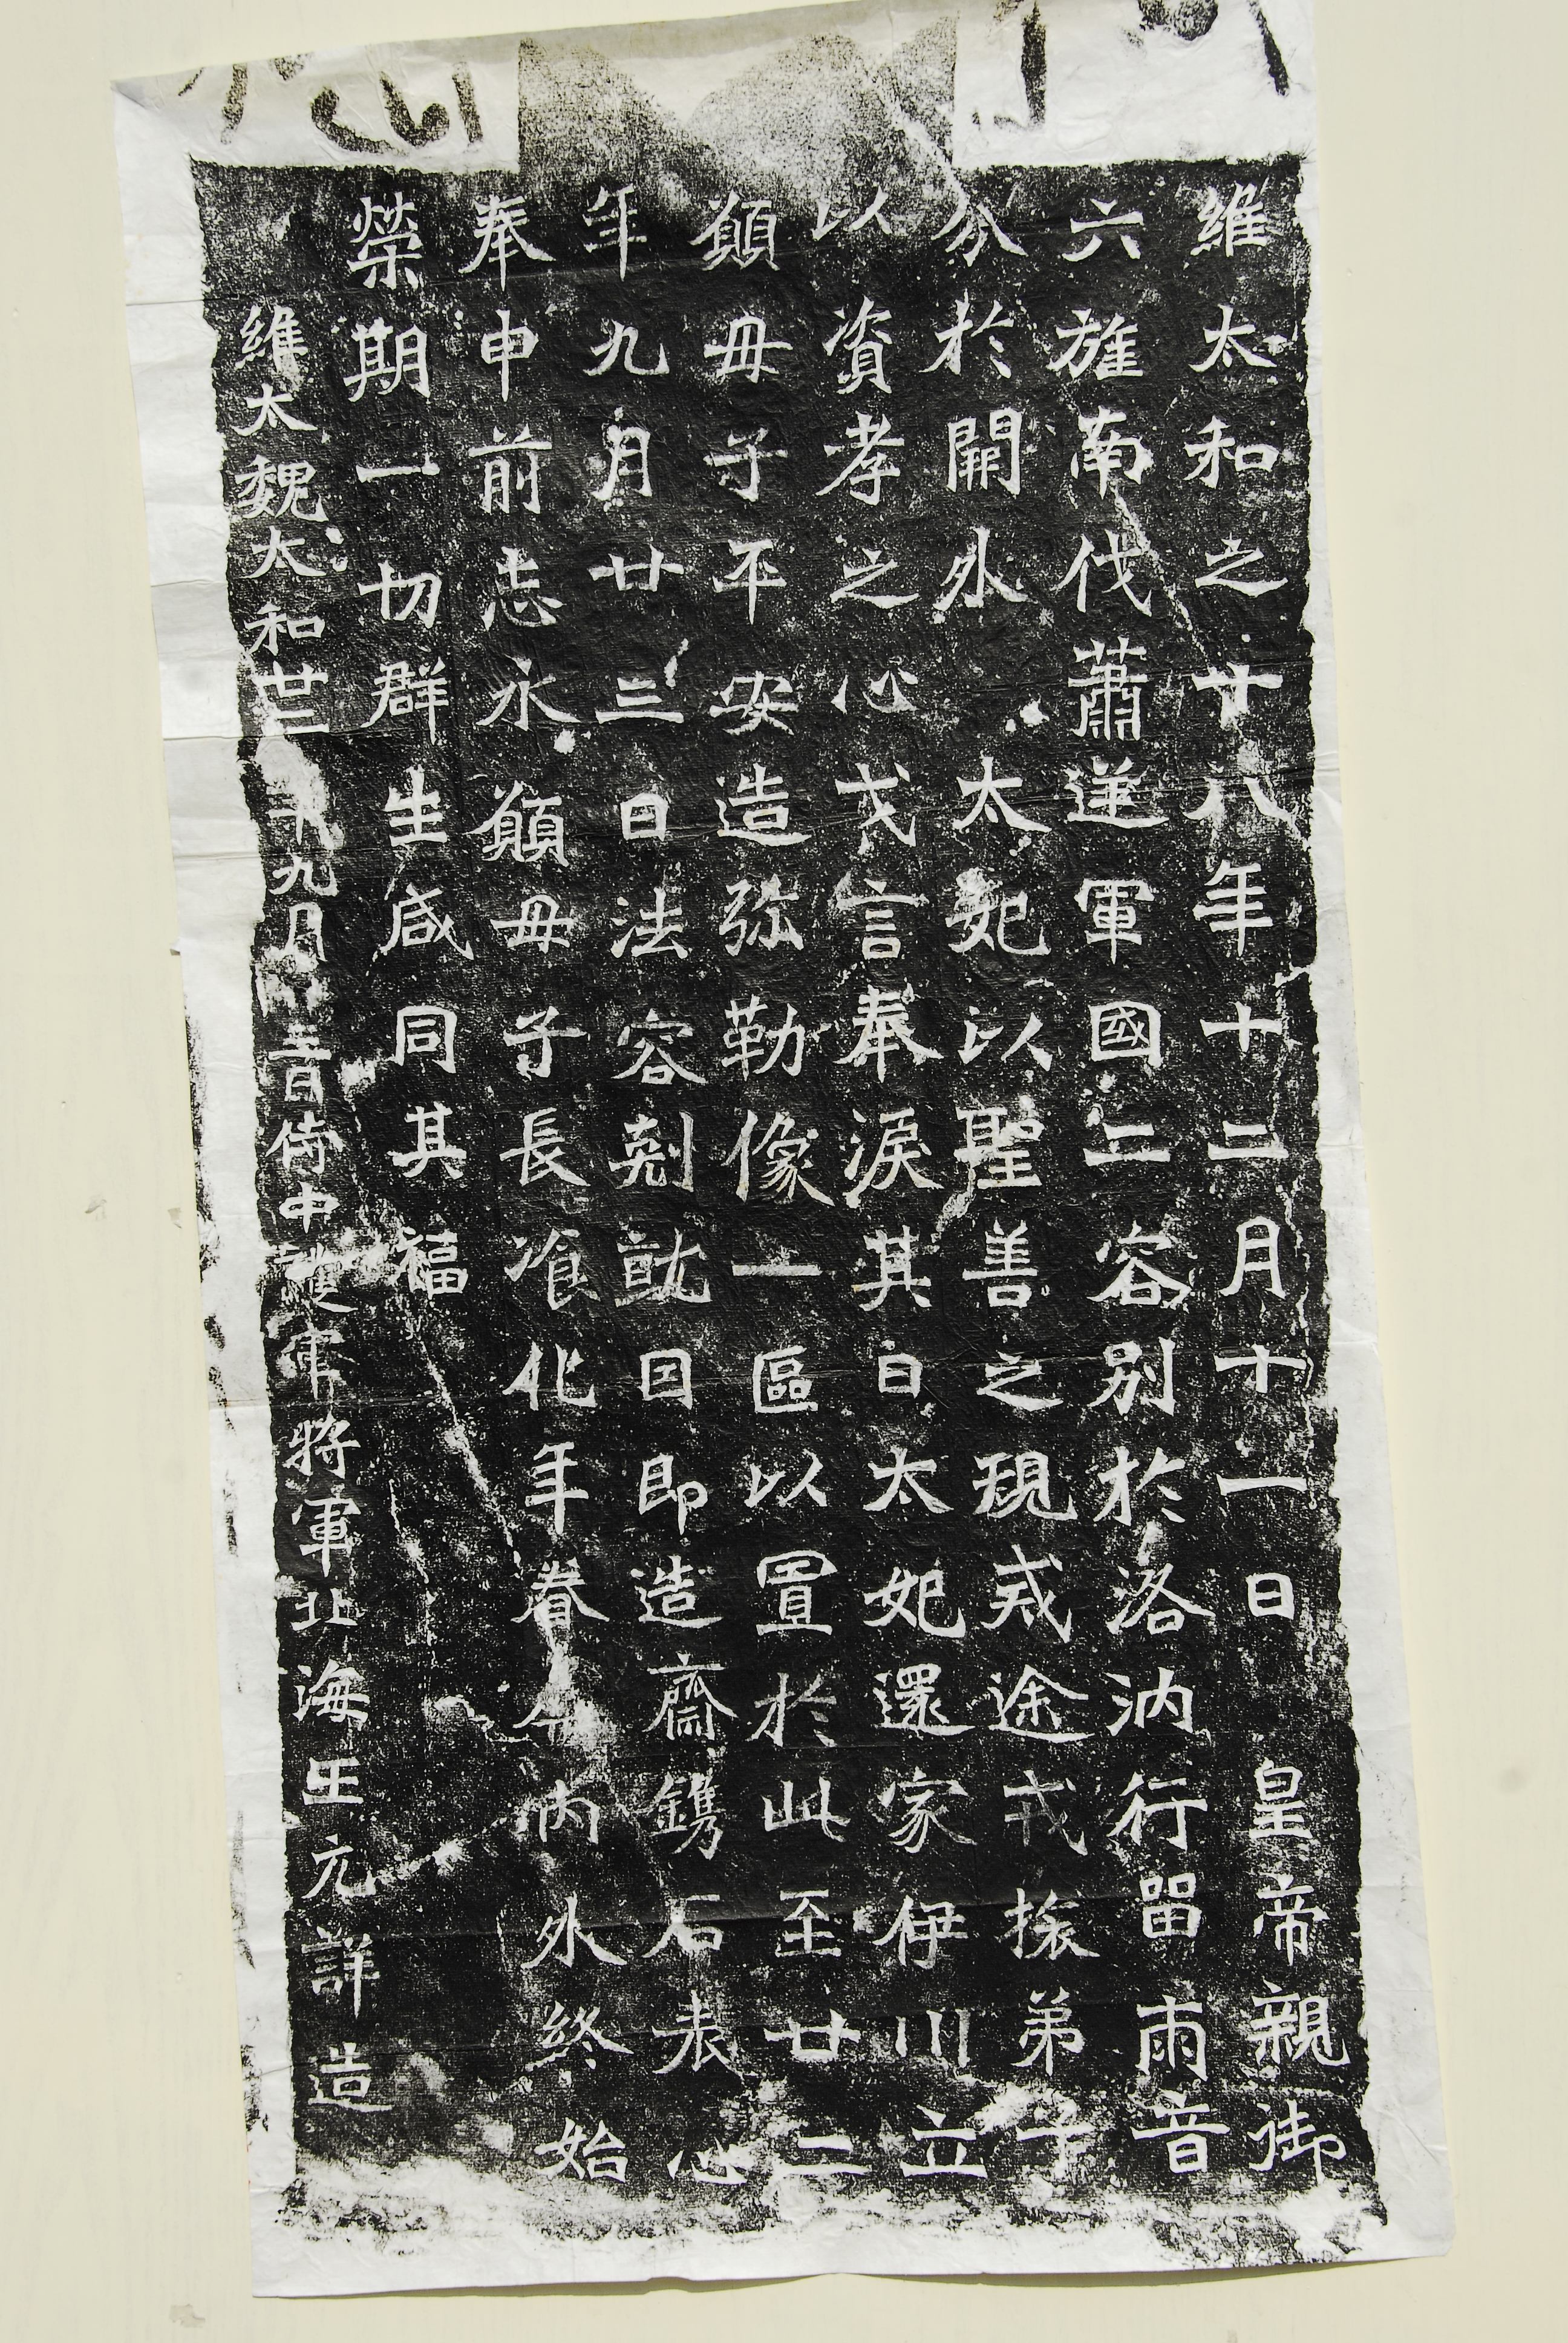 維太和之十八年十二月十一日皇帝親御
六旌南伐蕭逆軍國二容別於洛汭行留兩音
分於開外太妃以聖善之規戒途戎掾弟子
以資孝之心戈言奉淚其日太妃還家伊川立
願毋子平安造弥勒像一區以置於此至廿二
年九月廿三日法容剋就因即造齋鐫石表心
奉申前志永願毋子長飡化年眷令內外終始
榮期一切群生咸同其福
維太魏太和廿二年九月三日侍中護軍將軍北海王元詳造